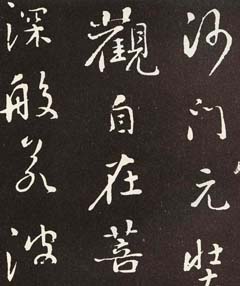 沙门元
觀自在菩
深般若波